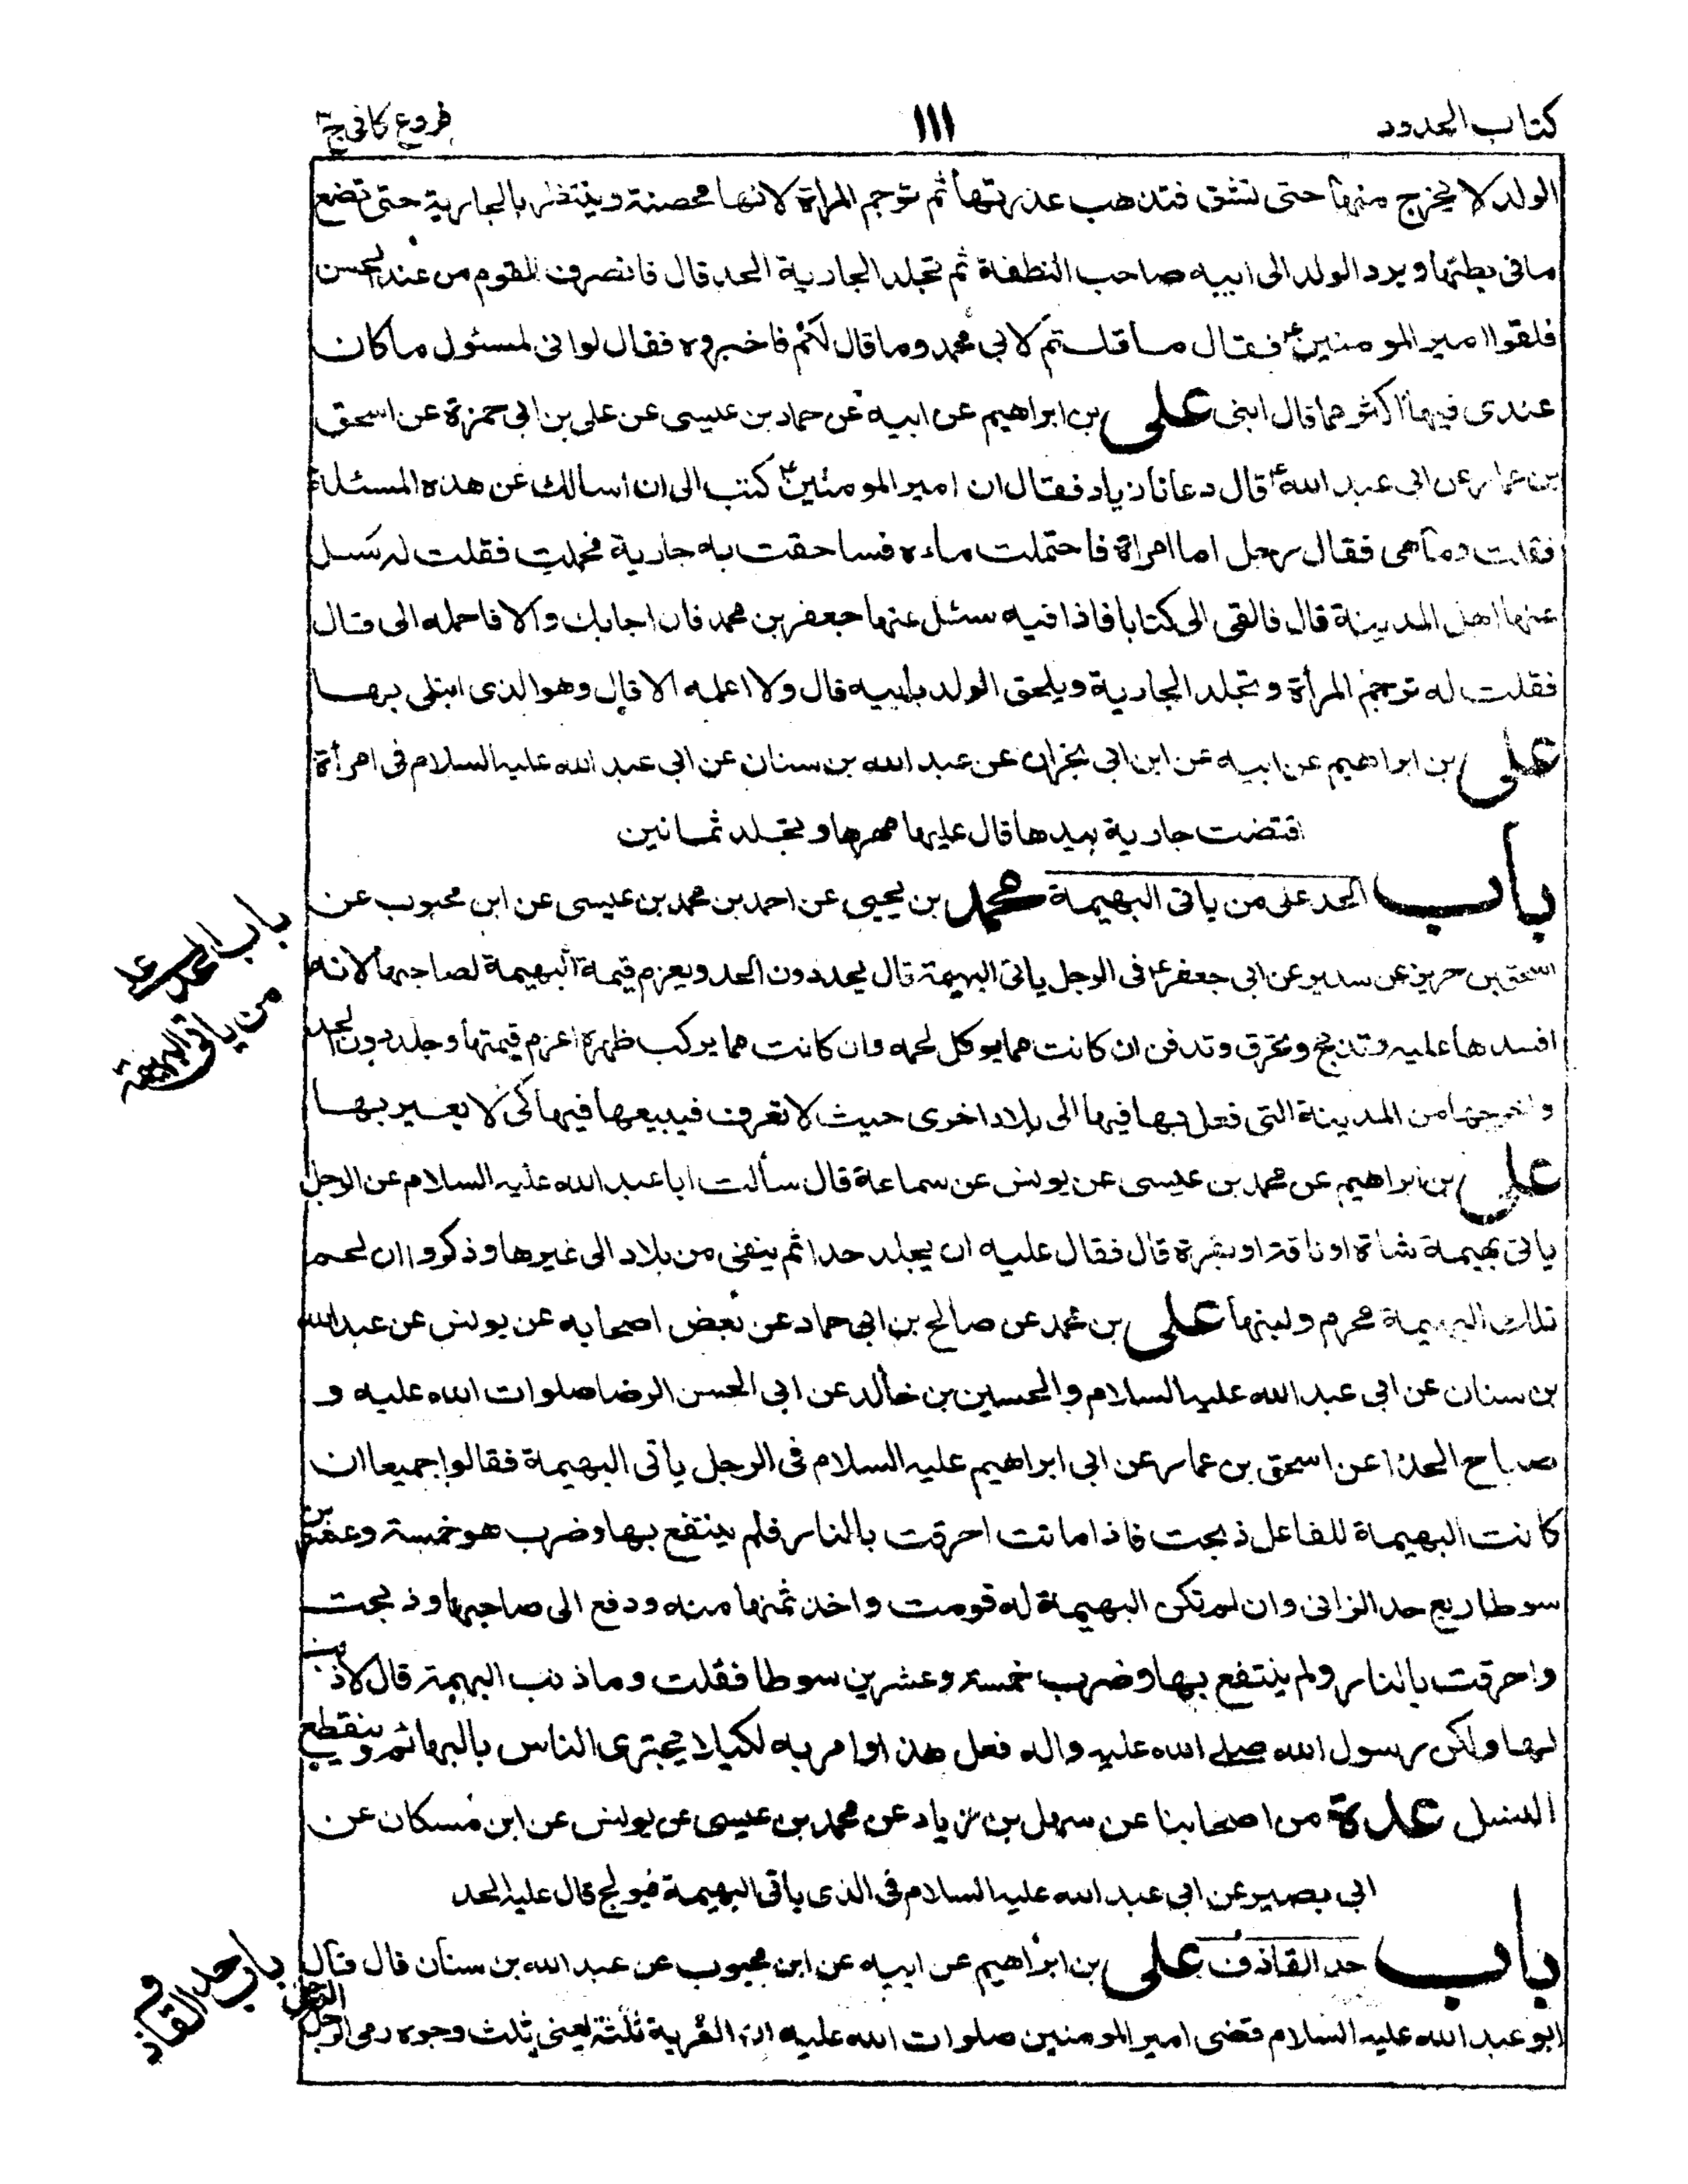 كتاب الحدود ١١١ فروع كافى ج٣
الولد لا يخرج منها حتى تشق فتذهب عذرتها ثم ترجم المرأة لانها محصنة وينتظر بالجارية حتى تضع
ما فى بطنها ويرد الولد الى ابيه صاحب النطفة ثم تجلد الجارية الحد قال فانصرف القوم من عند الحسن
فلقوا امير المومنين ع فقال ما قلتم لابي محمد وما قال لكم فاخبروه فقال لو انى لمسئول ما كان
عندى فيها اكثر مما قال ابنى على بن ابراهيم عن ابيه عن حماد بن عيسى عن على بن ابى حمزة عن اسحق
بن عمار عن ابى عبد الله ع قال دعانا زياد فقال ان امير المومنين كتب الى ان اسالك عن هذه المسئلة
فقلت وما هى فقال رجل اما امراة فاحتملت ماءه فساحقت به جارية فحملت فقلت له سل
عنها اهل المدينة قال فالقى الى كتابا فاذا فيه سئل عنها جعفر بن محمد فان اجابك والا فاحمله الى قال
فقلت له ترجم المرأة وتجلد الجارية ويلحق الولد بابيه قال ولا اعلمه الا قال وهو الذى ابتلى بها
على بن ابراهيم عن ابيه عن ابن ابى نجران عن عبد الله بن سنان عن ابى عبد الله عليه السلام فى امرأة
اقتضت جارية بيدها قال عليها مهرها وتجلد ثمانين
باب الحد على من ياتى البهيمة محمد بن يحيى عن احمد بن محمد بن عيسى عن ابن محبوب عن
اسحق بن حريز عن سدير عن ابى جعفر ع فى الرجل ياتى البهيمة قال يحد دون الحد ويغرم قيمة البهيمة لصاحبها لانه
افسدها عليه وتذبح وتحرق وتدفن ان كانت مما يوكل لحمه وان كانت مما يركب ظهره اغرم قيمتها وجلد دون الحد
واخرجها من المدينة التى فعل بها فيها الى بلاد اخرى حيث لا تعرف فيبيعها فيها كى لا يعير بها
على بن ابراهيم عن محمد بن عيسى عن يونس عن سماعة قال سألت ابا عبد الله عليه السلام عن الرجل
ياتى بهيمة شاة او ناقة او بقرة قال فقال عليه ان يجلد حدا ثم ينفى من بلاد الى غيرها وذكروا ان لحم
تلك البهيمة محرم ولبنها على بن محمد عن صالح بن ابى حماد عن بعض اصحابه عن يونس عن عبد الله
بن سنان عن ابى عبد الله عليه السلام والحسين بن خالد عن ابى الحسن الرضا صلوات الله عليه و
صباح الحذا عن اسحق بن عمار عن ابى ابراهيم عليه السلام فى الرجل ياتى البهيمة فقالوا جميعا ان
كانت البهيمة للفاعل ذبحت فاذا ماتت احرقت بالنار فلم ينتفع بها وضرب هو خمسة وعشرين
سوطا ربع حد الزانى وان لم تكن البهيمة له قومت واخذ ثمنها منه ودفع الى صاحبها وذبحت
واحرقت بالنار ولم ينتفع بها وضرب خمسة وعشرين سوطا فقلت وما ذنب البهيمة قال لا ذنب
لها ولكن رسول الله صلى الله عليه واله فعل هذا وامر به لكيلا يجترى الناس بالبهائم وينقطع
النسل عدة من اصحابنا عن سهل بن زياد عن محمد بن عيسى عن يونس عن ابن مسكان عن
ابى بصير عن ابى عبد الله عليه السلام فى الذى ياتى البهيمة فيولج قال عليه الحد
باب حد القاذف على بن ابراهيم عن ابيه عن ابن محبوب عن عبد الله بن سنان قال قال
ابو عبد الله عليه السلام قضى امير المومنين صلوات الله عليه ان الفرية ثلثة يعنى ثلث وجوه رمى الرجل الرجل
باب الحد على
من ياتى البهيمة
باب حد القاذف